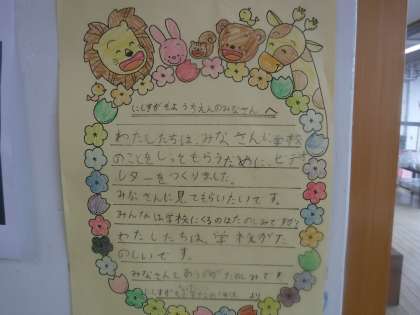 にしすがもようちえんのみなさんへ
わたしたちは、みなさんに学校
のことをしってもらうために、ビデオ
レターをつくりました。
みなさんに見てもらいたいです。
みんなは学校にくるのはたのしみですか?
わたしたちは、学校がた
のしいです。
みなさんとあうのがたのしみです
より